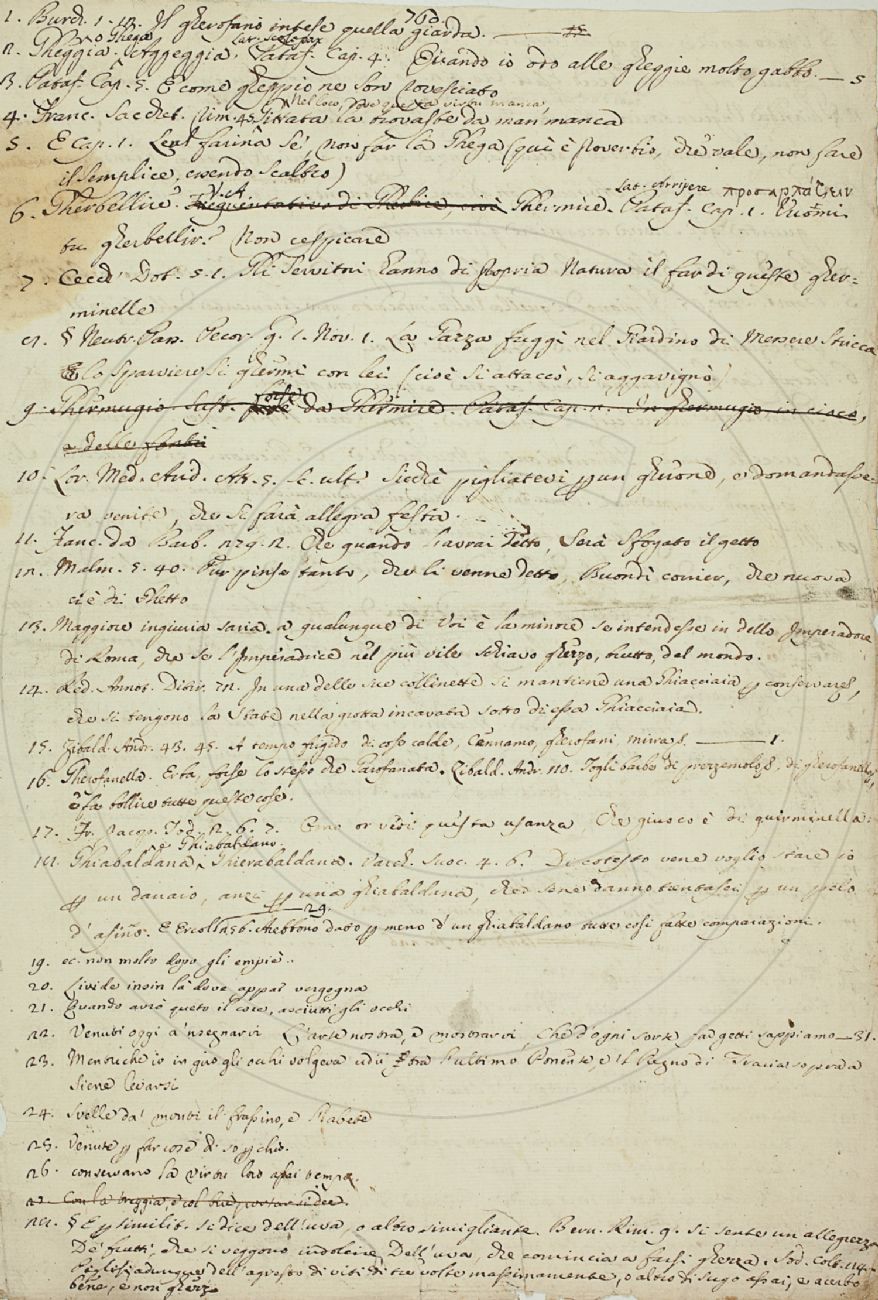 1. Burch. 1. 12. Il gherofano intese quella giarda. 760.
2. Gheggia. Acceggia. Pataf. Cap. 4. Quando io odo alle gheggie molto gabbo. — 5
3. Pataf. Cap. 5. E come gheppio ne son rovesciato
4. Franc. Sacchet. rim. 45. Titrata la trovaste da man manca
5. E cap. 1. Leal farina se', non far la Ghega (qui è proverbio, che vale, non fare
il semplice, essendo scaltro)
Lat. Arripere προσαρπάζειν
6. Gherbellire. V. A. Frequentativo di Ghermire, cioè Ghermire. Pataf. Cap. 1.
tu gherbellir? Non cespicare
7. Cecch. Dot. 5. 1. Gli Servitori hanno di propria Natura il far di queste gher=
minelle
8. § Neutr. Pass. Pecor. g. 1. Nov. 1. La Gazza fuggì nel Giardino di Messere Stricca
E lo sparviere si ghermì con lei (cioè si attaccò, si aggavignò)
9. Ghermugio. Sust. forse da Ghermire. Pataf. Cap. 2. In ghermugio in cioco,
10. Lor. Med. Arid. Att. 5. sc. ult. Sicchè pigliatevi per un ghirone, e domandasse=
ra venite, che si farà allegra festa.
11. Franc. da Barb. 279. 2. Che quando l'avrai detto, Serà sfogato il getto
12. Malm. 5. 40. Pur pinse tanto, che li venne detto, Buondì corrier, che nuova
ci è di Ghetto
13. Maggiore ingiuria saria a qualunque di Voi è la minore se intendesse in dello Imperadore
di Roma, che se l'Imperadrice nel più vile schiavo gherzo, brutto, del mondo.
14. Red. Annot. Ditir. 72. In una delle sue collinette si mantiene una Ghiacciaia per conservare,
che si tengono la State nella grotta incavata sotto di essa Ghiacciaia.
15. Zibald. Andr. 43. 45. A tempo frigido di cose calde, Cennamo, gherofani, mirra — 1.
16. Gherofanello. Erba, forse lo stesso che Garofanata. Zibald. Andr. 110. Togli barbe di prezzemolo, di gherofanello,
e fa bollire tutte queste cose.
17. Fr. Jacop. Tod. 2. 6. 7. Omo or vidi questa usanza, Che giuoco è di guirminella.
18. Ghiabaldana, e Ghiabaldano. Ghierabaldana. Varch. Suoc. 4. 6. Di cotesto ve ne voglio stare io
per un danaio, anzi per una ghiabaldana, che se ne danno trentasei per un pelo
d'asino. E Ercol. 256. Arebbono dato per meno d'un ghiabaldano tutte così fatte comparazioni. 29.
19. ec. non molto dopo gli empiè.
20. Livide insin là dove appar vergogna
21. Quando avrò queto il core, asciutti gli occhi
22. Venuti oggi a 'nsegnarvi L'arte nostra, e mostrarvi, Che d'ogni sorte far getti sappiamo — 31.
23. Mentrechè io in giro gli occhi volgeva udii tra l'ultimo Ponente, e il Regno di Tracia sopra da
Siene levarsi
24. Svelle da' monti il frassino, e l'abete
25. Venute per far cose di soperchio.
26. conservare la virtù loro assai tempo.
27. Con la treggia, e col bue,
28. § E per similit. si dice dell'uva, o altro simigliante. Bern. Rim. 9. Si sente un allegrezza
De' frutti, che si veggono indolcire Dell'uva, che comincia a farsi gherza. Sod. Colt. 114.
Piglisi adunque dell'agresto di viti di tre volte massimamente, o altro di sugo assai, e acerbo
bene, e non gherzo